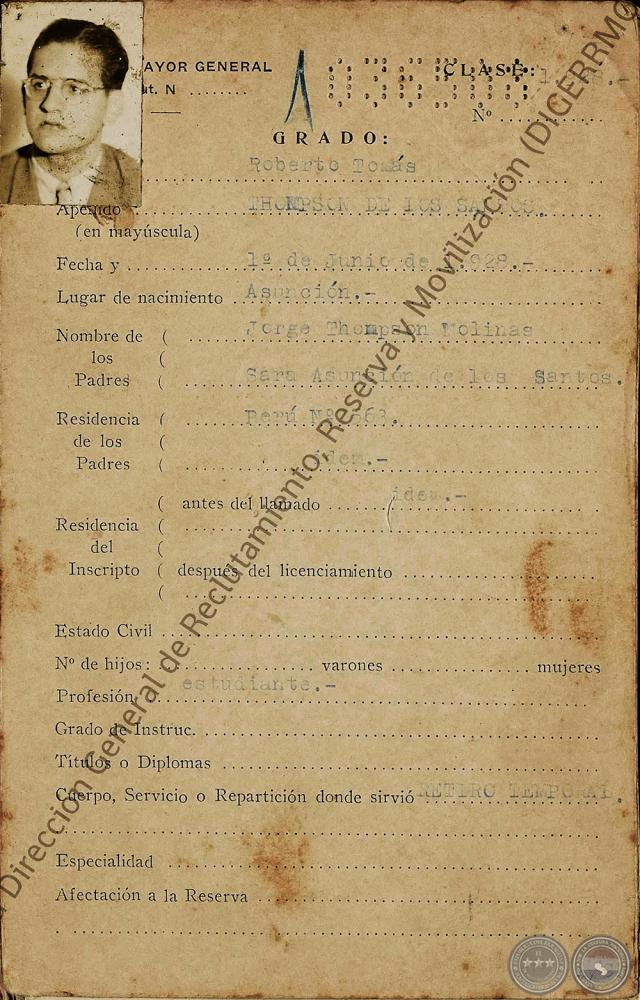 AYOR GENERAL
ut. N ........
CLASE:
Nº
GRADO:
Roberto Tomás
Apellido THOMPSON DE LOS SANTOS.
(en mayúscula)
Fecha y 1º de Junio de 1.928.-
Lugar de nacimiento Asunción.-
Nombre de ( Jorge Thompson Molinas
los (
Padres ( Sara Asunción de los Santos.
Residencia ( Perú Nº 563.
de los (
Padres ( idem.-
( antes del llamado idem.-
Residencia (
del (
Inscripto ( después del licenciamiento
(
Estado Civil
Nº de hijos: varones mujeres
Profesión estudiante.-
Grado de Instruc.
Títulos o Diplomas
Cuerpo, Servicio o Repartición donde sirvió RETIRO TEMPORAL.
Especialidad
Afectación a la Reserva
Dirección General de Reclutamiento, Reserva y Movilización (DIGERRMO